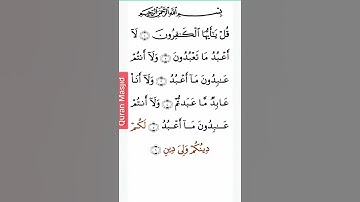 بِسْمِ اللَّهِ الرَّحْمَٰنِ الرَّحِيمِ
قُلْ يَٰٓأَيُّهَا ٱلْكَٰفِرُونَ ١ لَآ
أَعْبُدُ مَا تَعْبُدُونَ ٢ وَلَآ أَنتُمْ
عَٰبِدُونَ مَآ أَعْبُدُ ٣ وَلَآ أَنَا۠
عَابِدٌ مَّا عَبَدتُّمْ ٤ وَلَآ أَنتُمْ
عَٰبِدُونَ مَآ أَعْبُدُ ٥ لَكُمْ
دِينُكُمْ وَلِىَ دِينِ ٦
Quran Masjid